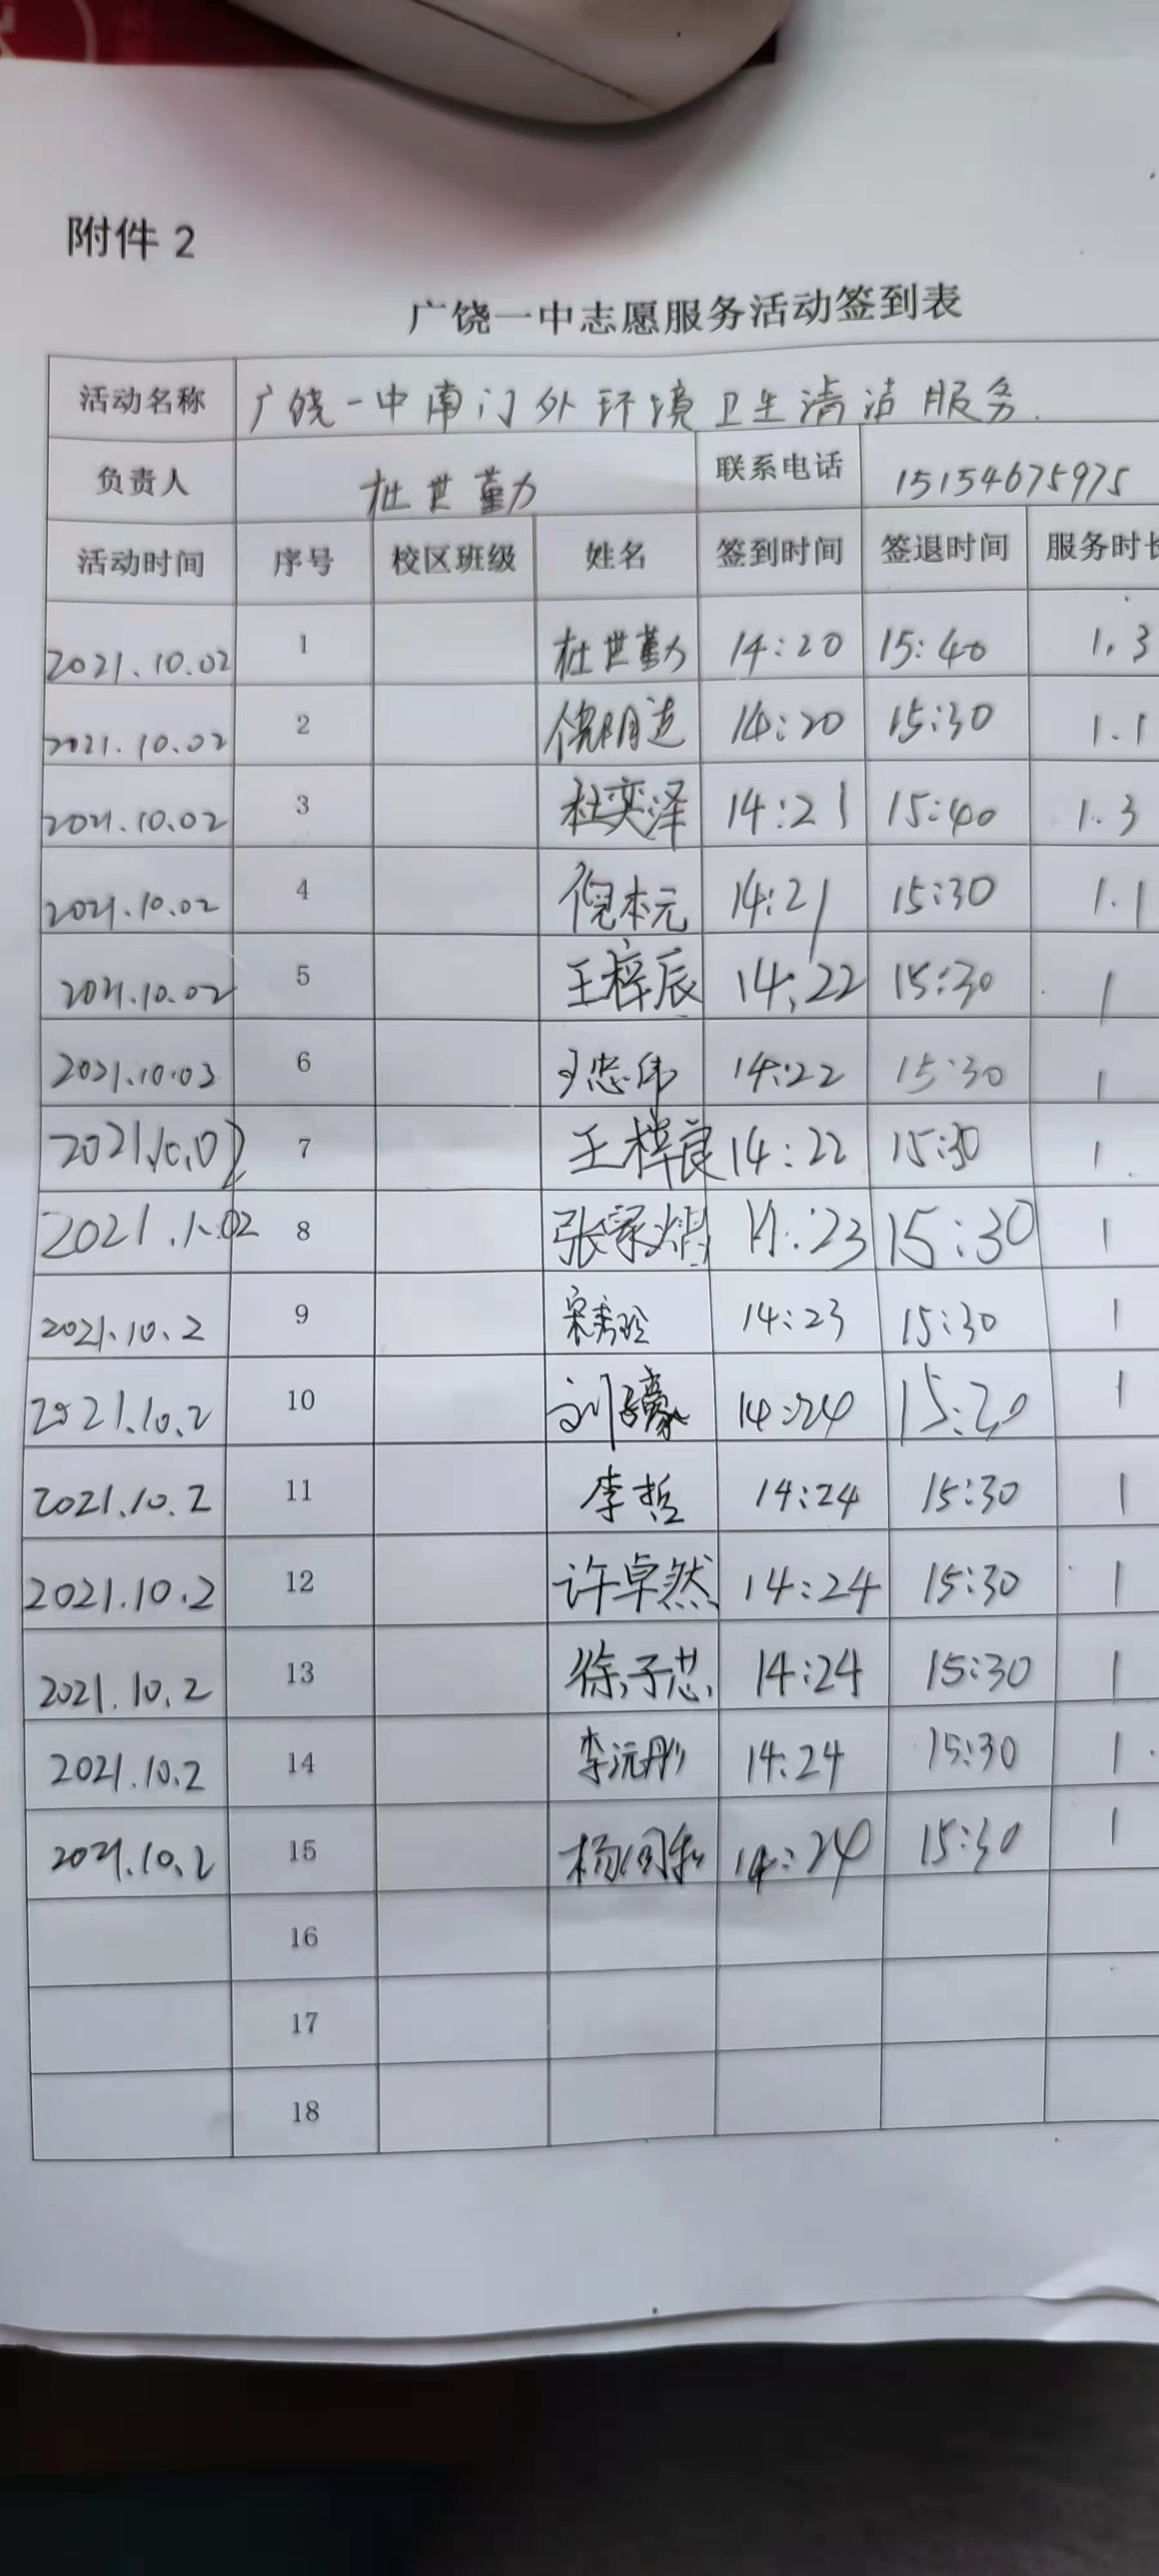 附件 2
广饶一中志愿服务活动签到表
活动名称 广饶一中南门外环境卫生清洁服务.
负责人 杜世勤 联系电话 15154675975
活动时间 序号 校区班级 姓名 签到时间 签退时间 服务时长
2021.10.02 1 杜世勤 14:20 15:40 1.3
2021.10.02 2 倪明进 14:20 15:30 1.1
2021.10.02 3 杜奕泽 14:21 15:40 1.3
2021.10.02 4 倪本元 14:21 15:30 1.1
2021.10.02 5 王梓辰 14:22 15:30 1
2021.10.03 6 王忠伟 14:22 15:30 1
2021.10.02 7 王梓良 14:22 15:30 1
2021.10.02 8 张家 14:23 15:30 1
2021.10.2 9 宋秀玲 14:23 15:30 1
2021.10.2 10 刘子豪 14:24 15:20 1
2021.10.2 11 李哲 14:24 15:30 1
2021.10.2 12 许卓然 14:24 15:30 1
2021.10.2 13 徐子芯 14:24 15:30 1
2021.10.2 14 李沅彤 14:24 15:30 1
2021.10.2 15 杨 14:24 15:30 1
16
17
18